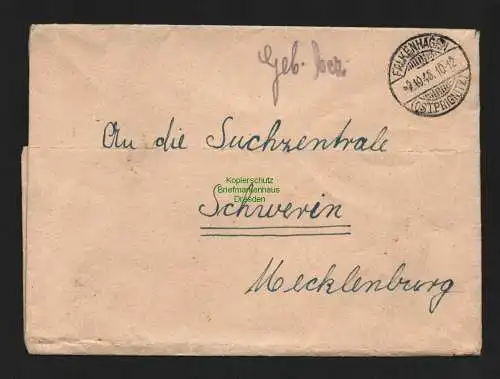 Geb. bez.
FALKENHAGEN
-2.10.46.10-12
(OSTPRIGNITZ)
An die Suchzentrale
Kopierschutz
Briefmarkenhaus
Dresden
Schwerin
Mecklenburg